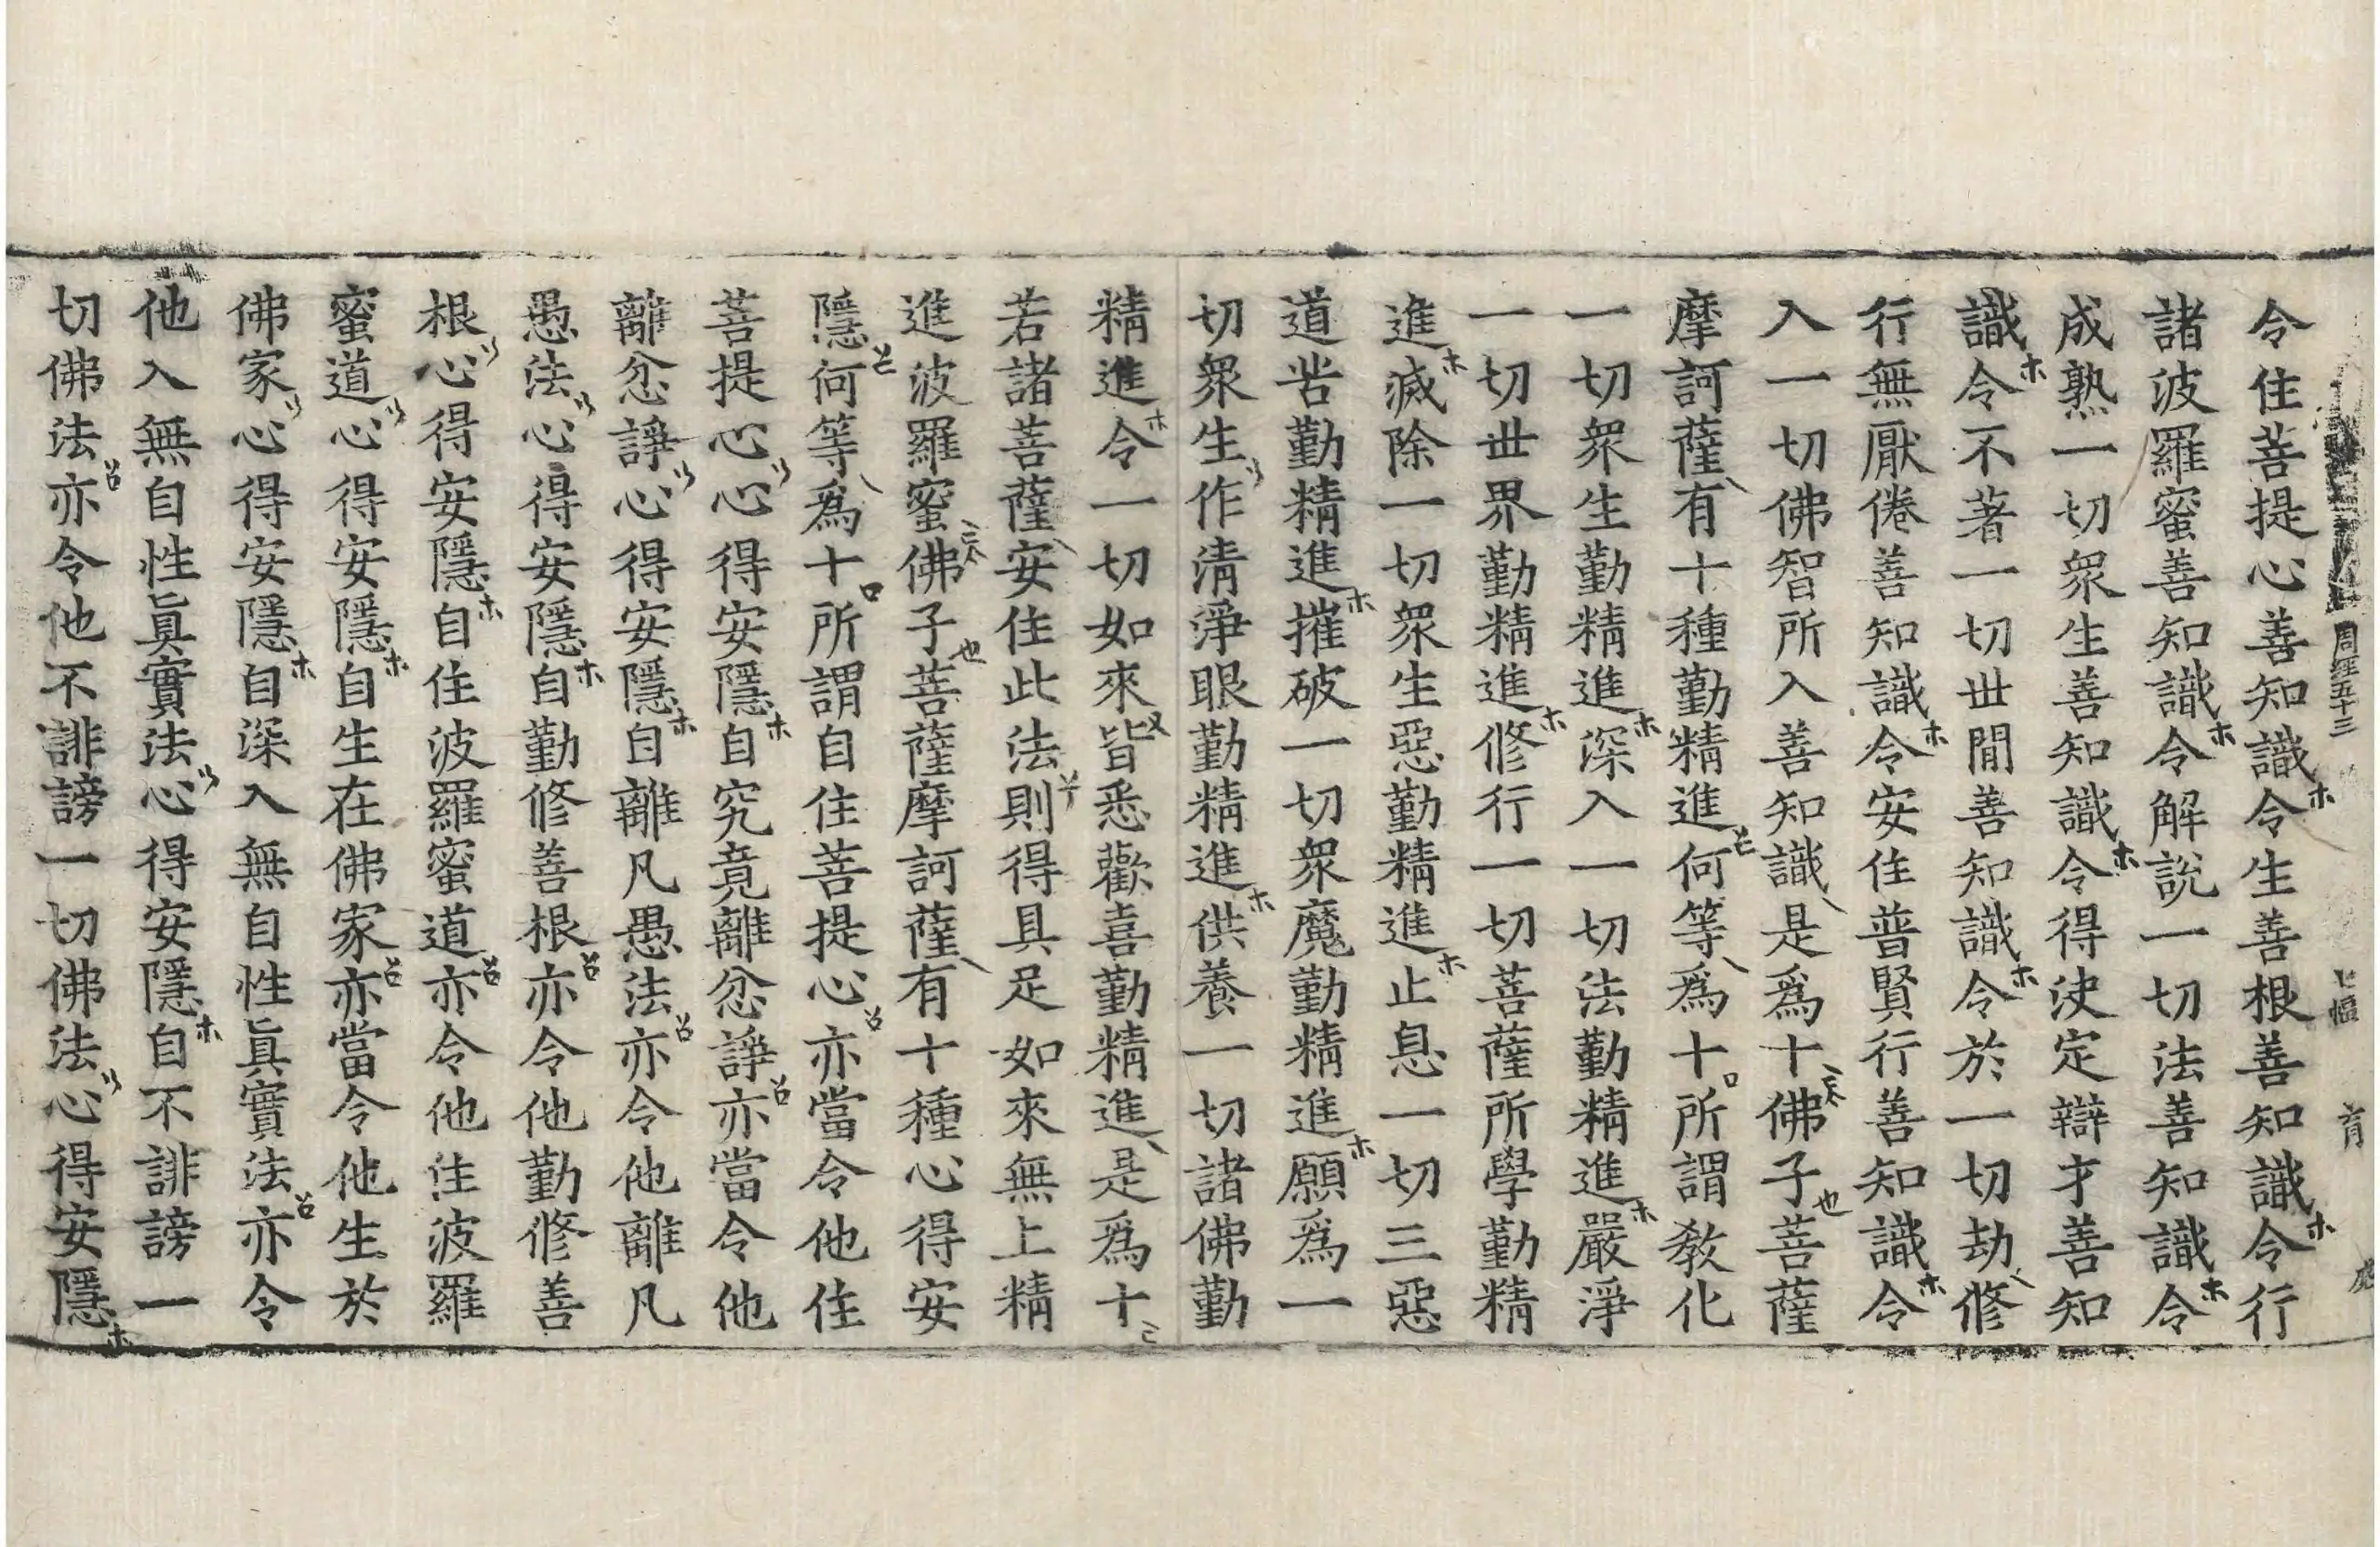 周經五十三 七幅 育
令住菩提心善知識令生善根善知識令行
諸波羅蜜善知識令解說一切法善知識令
成熟一切衆生善知識令得决定辯才善知
識令不著一切世閒善知識令於一切劫修
行無厭倦善知識令安住普賢行善知識令
入一切佛智所入善知識是爲十佛子菩薩
摩訶薩有十種勤精進何等爲十所謂敎化
一切衆生勤精進深入一切法勤精進嚴淨
一切世界勤精進修行一切菩薩所學勤精
進滅除一切衆生惡勤精進止息一切三惡
道苦勤精進摧破一切衆魔勤精進願爲一
切衆生作淸淨眼勤精進供養一切諸佛勤
精進令一切如來皆悉歡喜勤精進是爲十
若諸菩薩安住此法則得具足如來無上精
進波羅蜜佛子菩薩摩訶薩有十種心得安
隱何等爲十所謂自住菩提心亦當令他住
菩提心心得安隱自究竟離忿諍亦當令他
離忿諍心得安隱自離凡愚法亦令他離凡
愚法心得安隱自勤修善根亦令他勤修善
根心得安隱自住波羅蜜道亦令他住波羅
蜜道心得安隱自生在佛家亦當令他生於
佛家心得安隱自深入無自性眞實法亦令
他入無自性眞實法心得安隱自不誹謗一
切佛法亦令他不誹謗一切佛法心得安隱